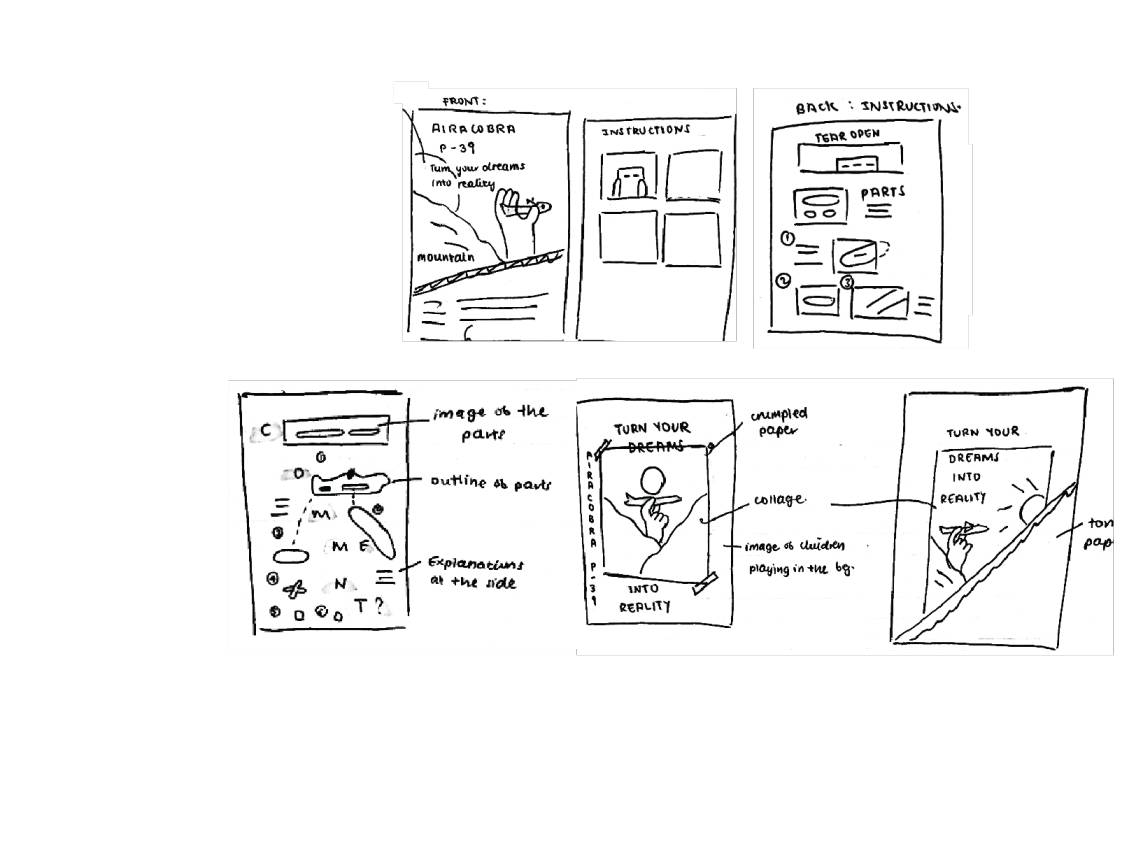 FRONT:
AIRACOBRA
P-39
Turn your dreams
into reality
mountain
INSTRUCTIONS
BACK : INSTRUCTIONS.
TEAR OPEN
PARTS
1
2
3
C
image of the
parts
1
O
outline of parts
M
2
3
M E
Explanations
at the side
4
N
5
6
T ?
TURN YOUR
DREAMS
AIRACOBRA P-39
INTO
REALITY
crumpled
paper
collage.
image of children
playing in the bg.
TURN YOUR
DREAMS
INTO
REALITY